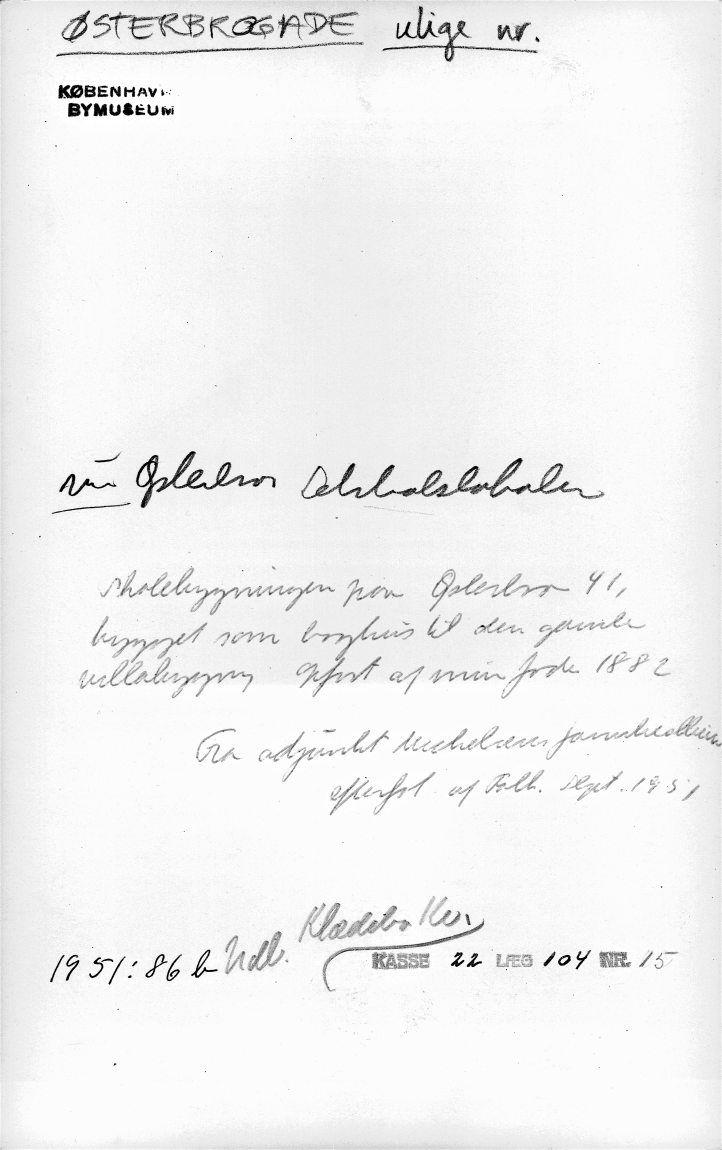 ØSTERBROGADE ulige nr.
KØBENHAVN
BYMUSEUM
Østerbros Selskabslokaler
Skolebygningen paa Østerbro 41,
bygget som baghus til den gamle
villabygning opført af min fader 1882
Fra adjunkt Michelsens
af Polk. Sept. 1951
1951:86 b Udl.
KASSE 22 LÆG 104 NR. 15